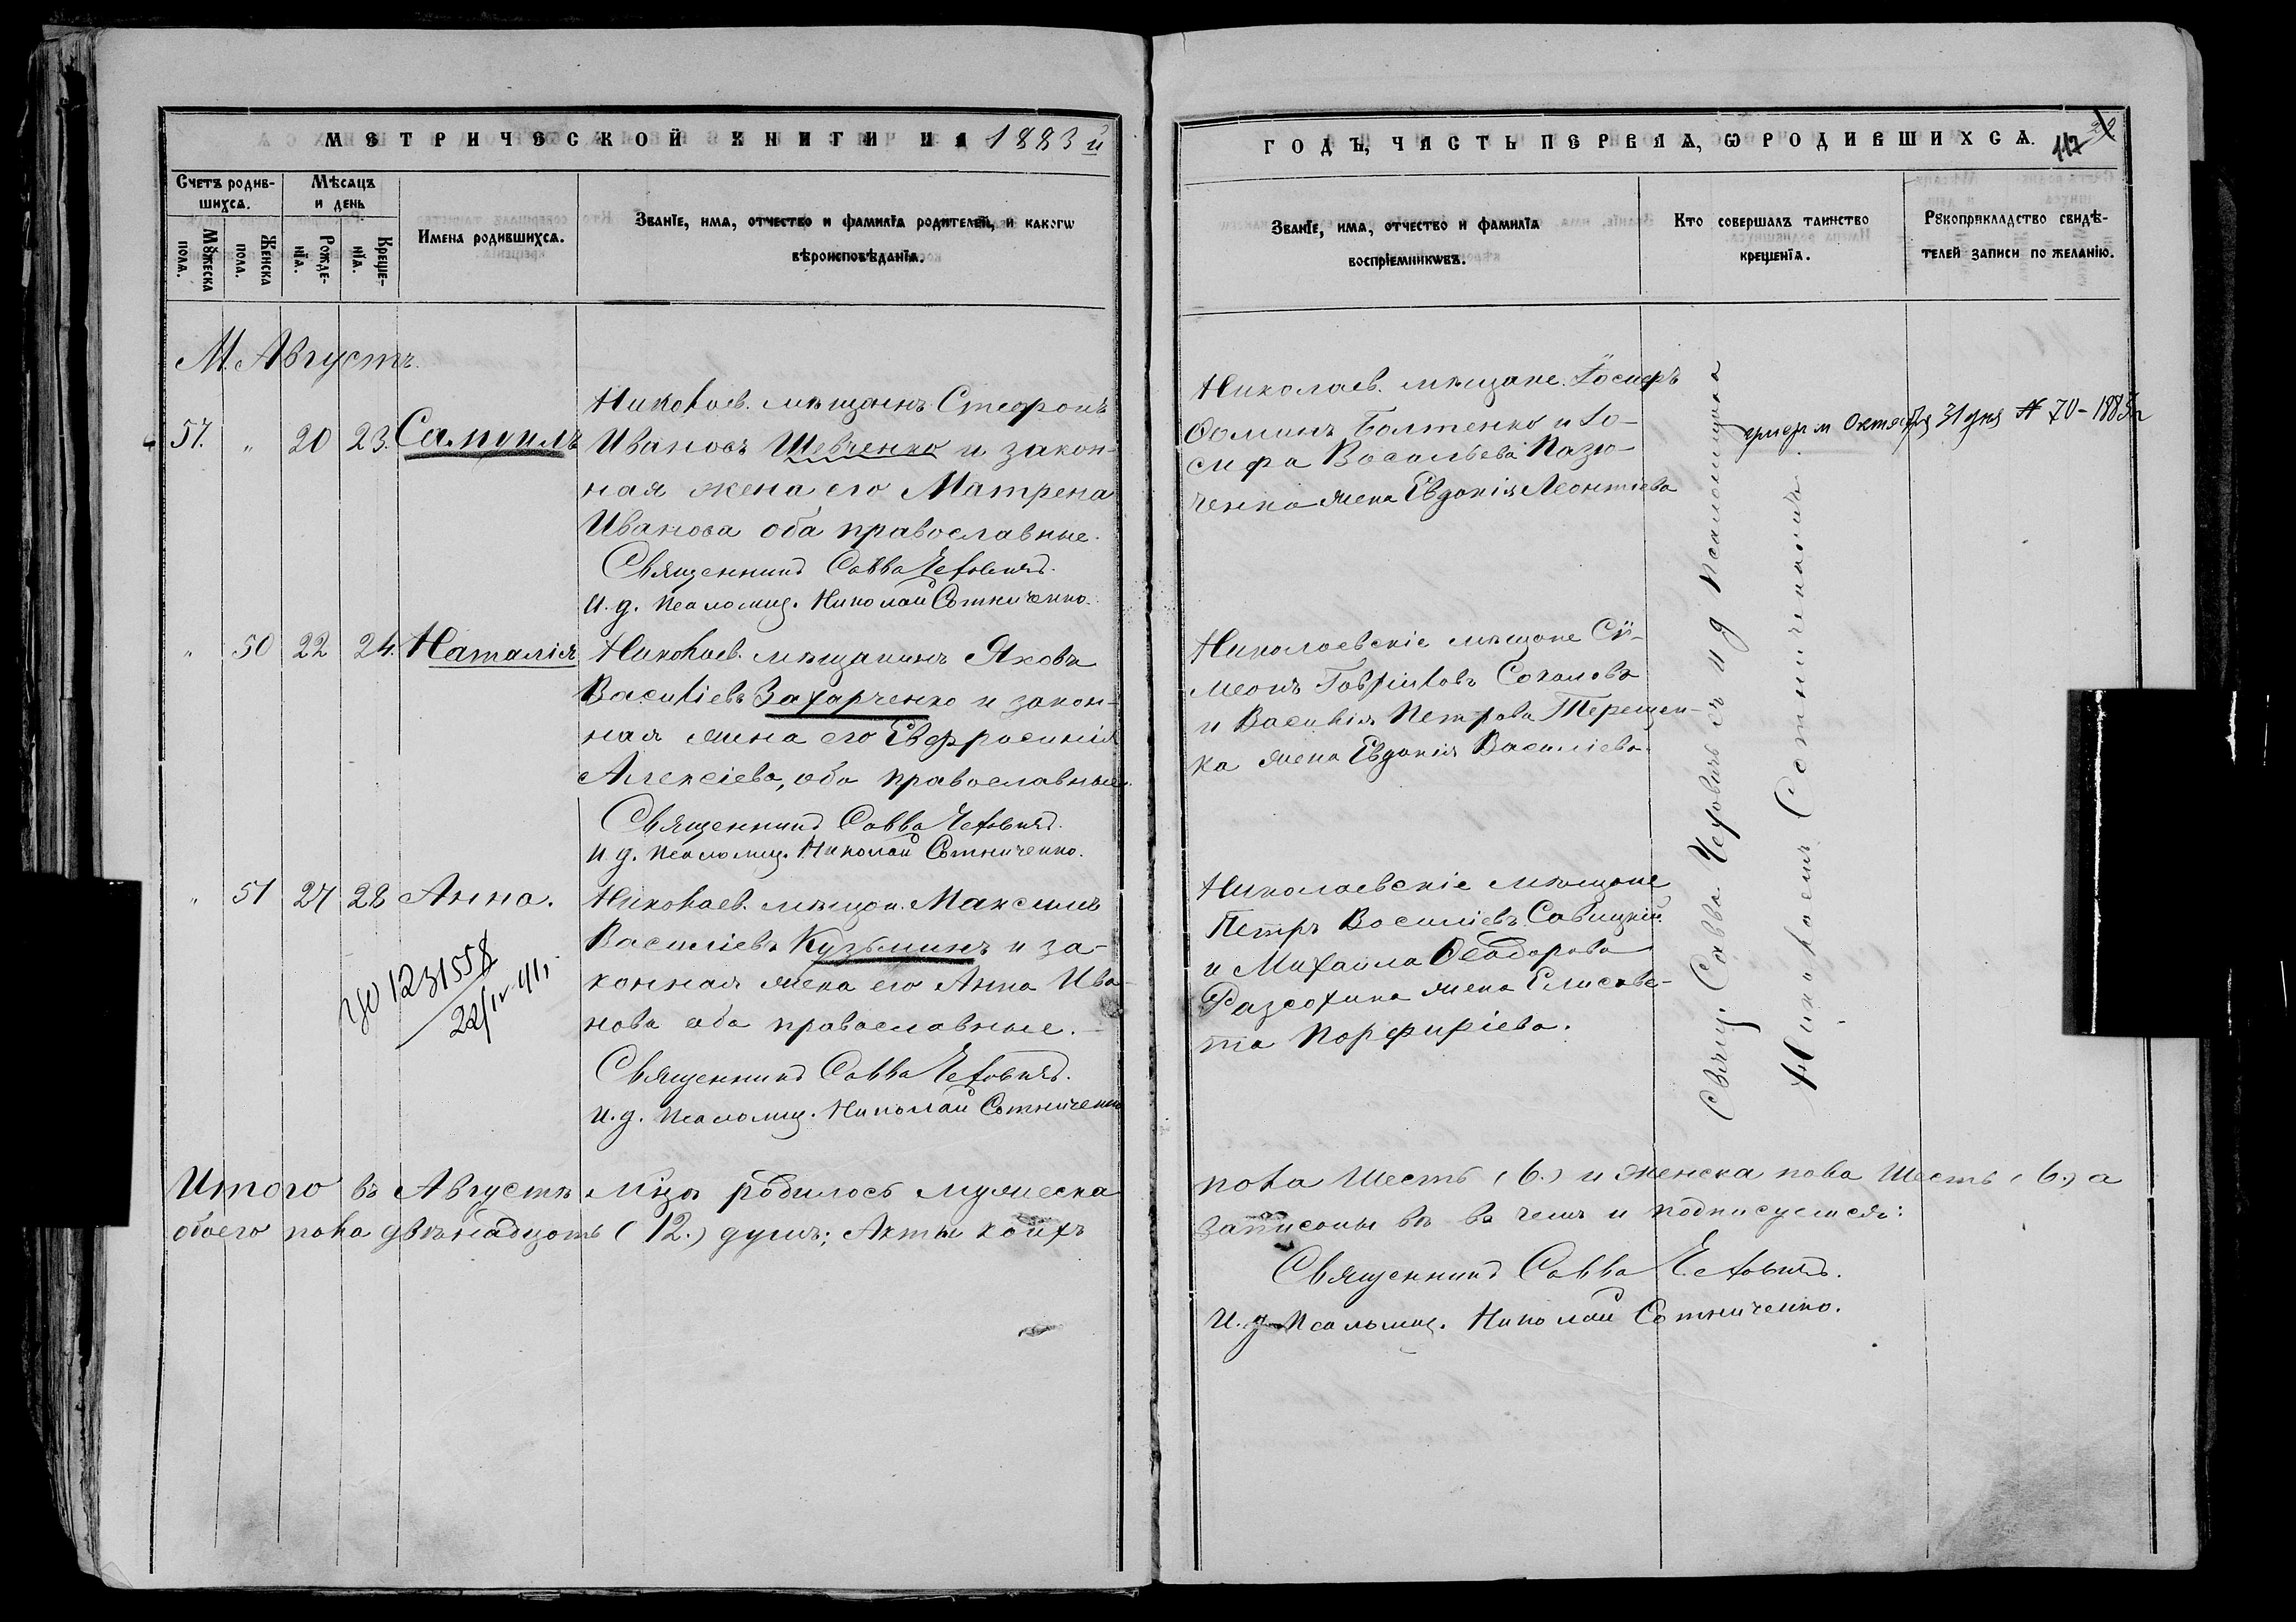 МЕТРИЧЕСКОЙ КНИГИ НА 1883 й
Счетъ родив-
шихсѧ.
Мѣсѧцъ
и день
Имена родившихсѧ.
Званїе, имѧ, отчество и фамилїѧ родителей, и какогѡ
вѣроисповѣданїѧ.
Мꙋжеска
пола.
Женска
пола.
Рожде-
нїѧ.
Креще-
нїѧ.
М. Августъ.
57. " 20 23. Самуилъ
Николаев. мѣщанинъ Стефанъ
Ивановъ Шевченко и закон-
ная жена его Матрена
Иванова оба православные.
Священникъ Савва Чеховичъ.
И. д. псаломщ. Николай Сотниченко.
" 50 22 24. Наталія
Николаев. мѣщанинъ Яковъ
Василіевъ Захарченко и закон-
ная жена его Евфросинія
Алексіева, оба православные.
Священникъ Савва Чеховичъ.
И. д. псаломщ. Николай Сотниченко.
" 51 27 28 Анна.
Николаев. мѣщан. Максимъ
Василіевъ Кузьминъ и за-
конная жена его Анна Ива-
нова оба православные.
Священникъ Савва Чеховичъ.
И. д. псаломщ. Николай Сотниченко
1231558
22/IV 911
Итого въ Августѣ м-цѣ родилось мужеска
обоего пола двѣнадцать (12.) душъ; Акты коихъ
ГОДЪ, ЧАСТЬ ПЕРВАѦ, Ѡ РОДИВШИХСѦ.
117
Званїе, имѧ, отчество и фамилїѧ
воспрїемникѡвъ.
Кто совершалъ таинство
крещенїѧ.
Рꙋкоприкладство свидѣ-
телей записи по желанїю.
Николаев. мѣщане. Іосифъ
Ѳоминъ Балтенко и Іо-
сифа Васильева Казю-
ченка жена Евдокія Леонтіева
Октября 31 дня № 70 - 1885 г
Николаевскіе мѣщане Си-
меонъ Гавріиловъ Соколовъ
и Василія Петрова Терещен-
ка жена Евдокія Василіева.
Николаевскіе мѣщане
Петръ Василіевъ Савицкій
и Михаила Ѳеодорова
Разсохина жена Елисаве-
та Порфиріева.
Свящ. Савва Чеховичъ съ и д псаломщика
Николаемъ Сотниченкомъ.
пола шесть (6.) и женска пола шесть (6.) а
записаны въ въ чемъ и подписуемся:
Священникъ Савва Чеховичъ.
И. д. псаломщ. Николай Сотниченко.